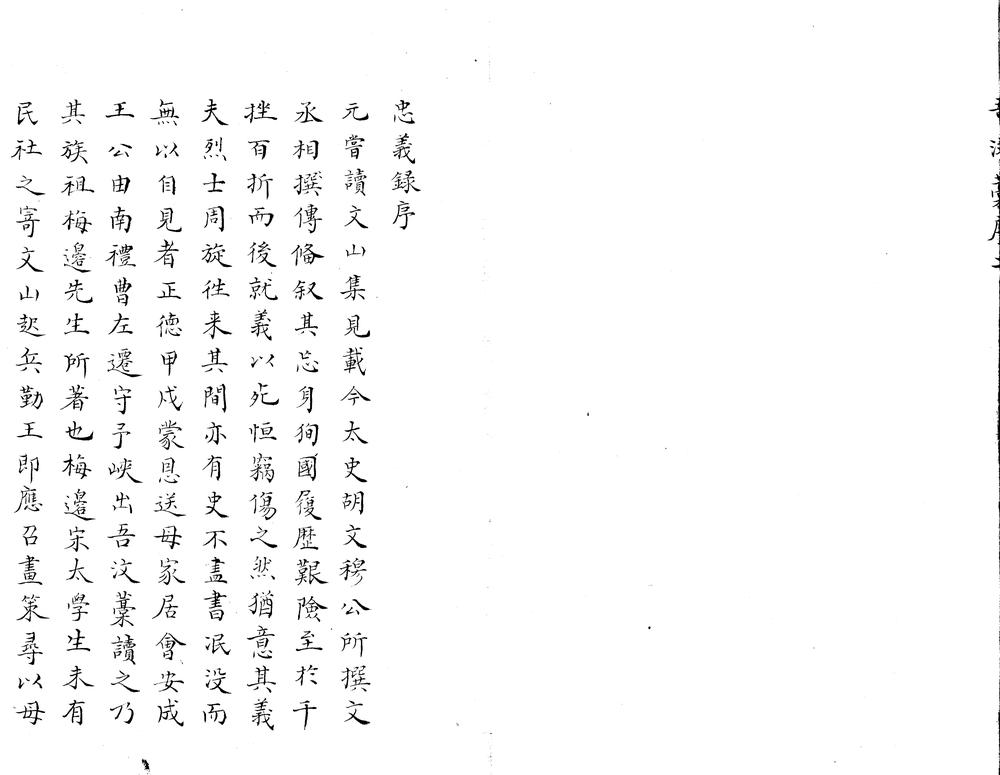 忠義録序
元嘗讀文山集見載今太史胡文穆公所撰文
丞相撰傳俻叙其忘身狥國履歷艱險至於千
挫百折而後就義以死恒竊傷之然猶意其義
夫烈士周旋徃来其間亦有史不盡書泯没而
無以自見者正德甲戍蒙恩送母家居會安成
王公由南禮曹左遷守予峽出吾汶藁讀之乃
其族祖梅邉先生所著也梅邉宋太學生未有
民社之寄文山起兵勤王即應召畫策尋以母